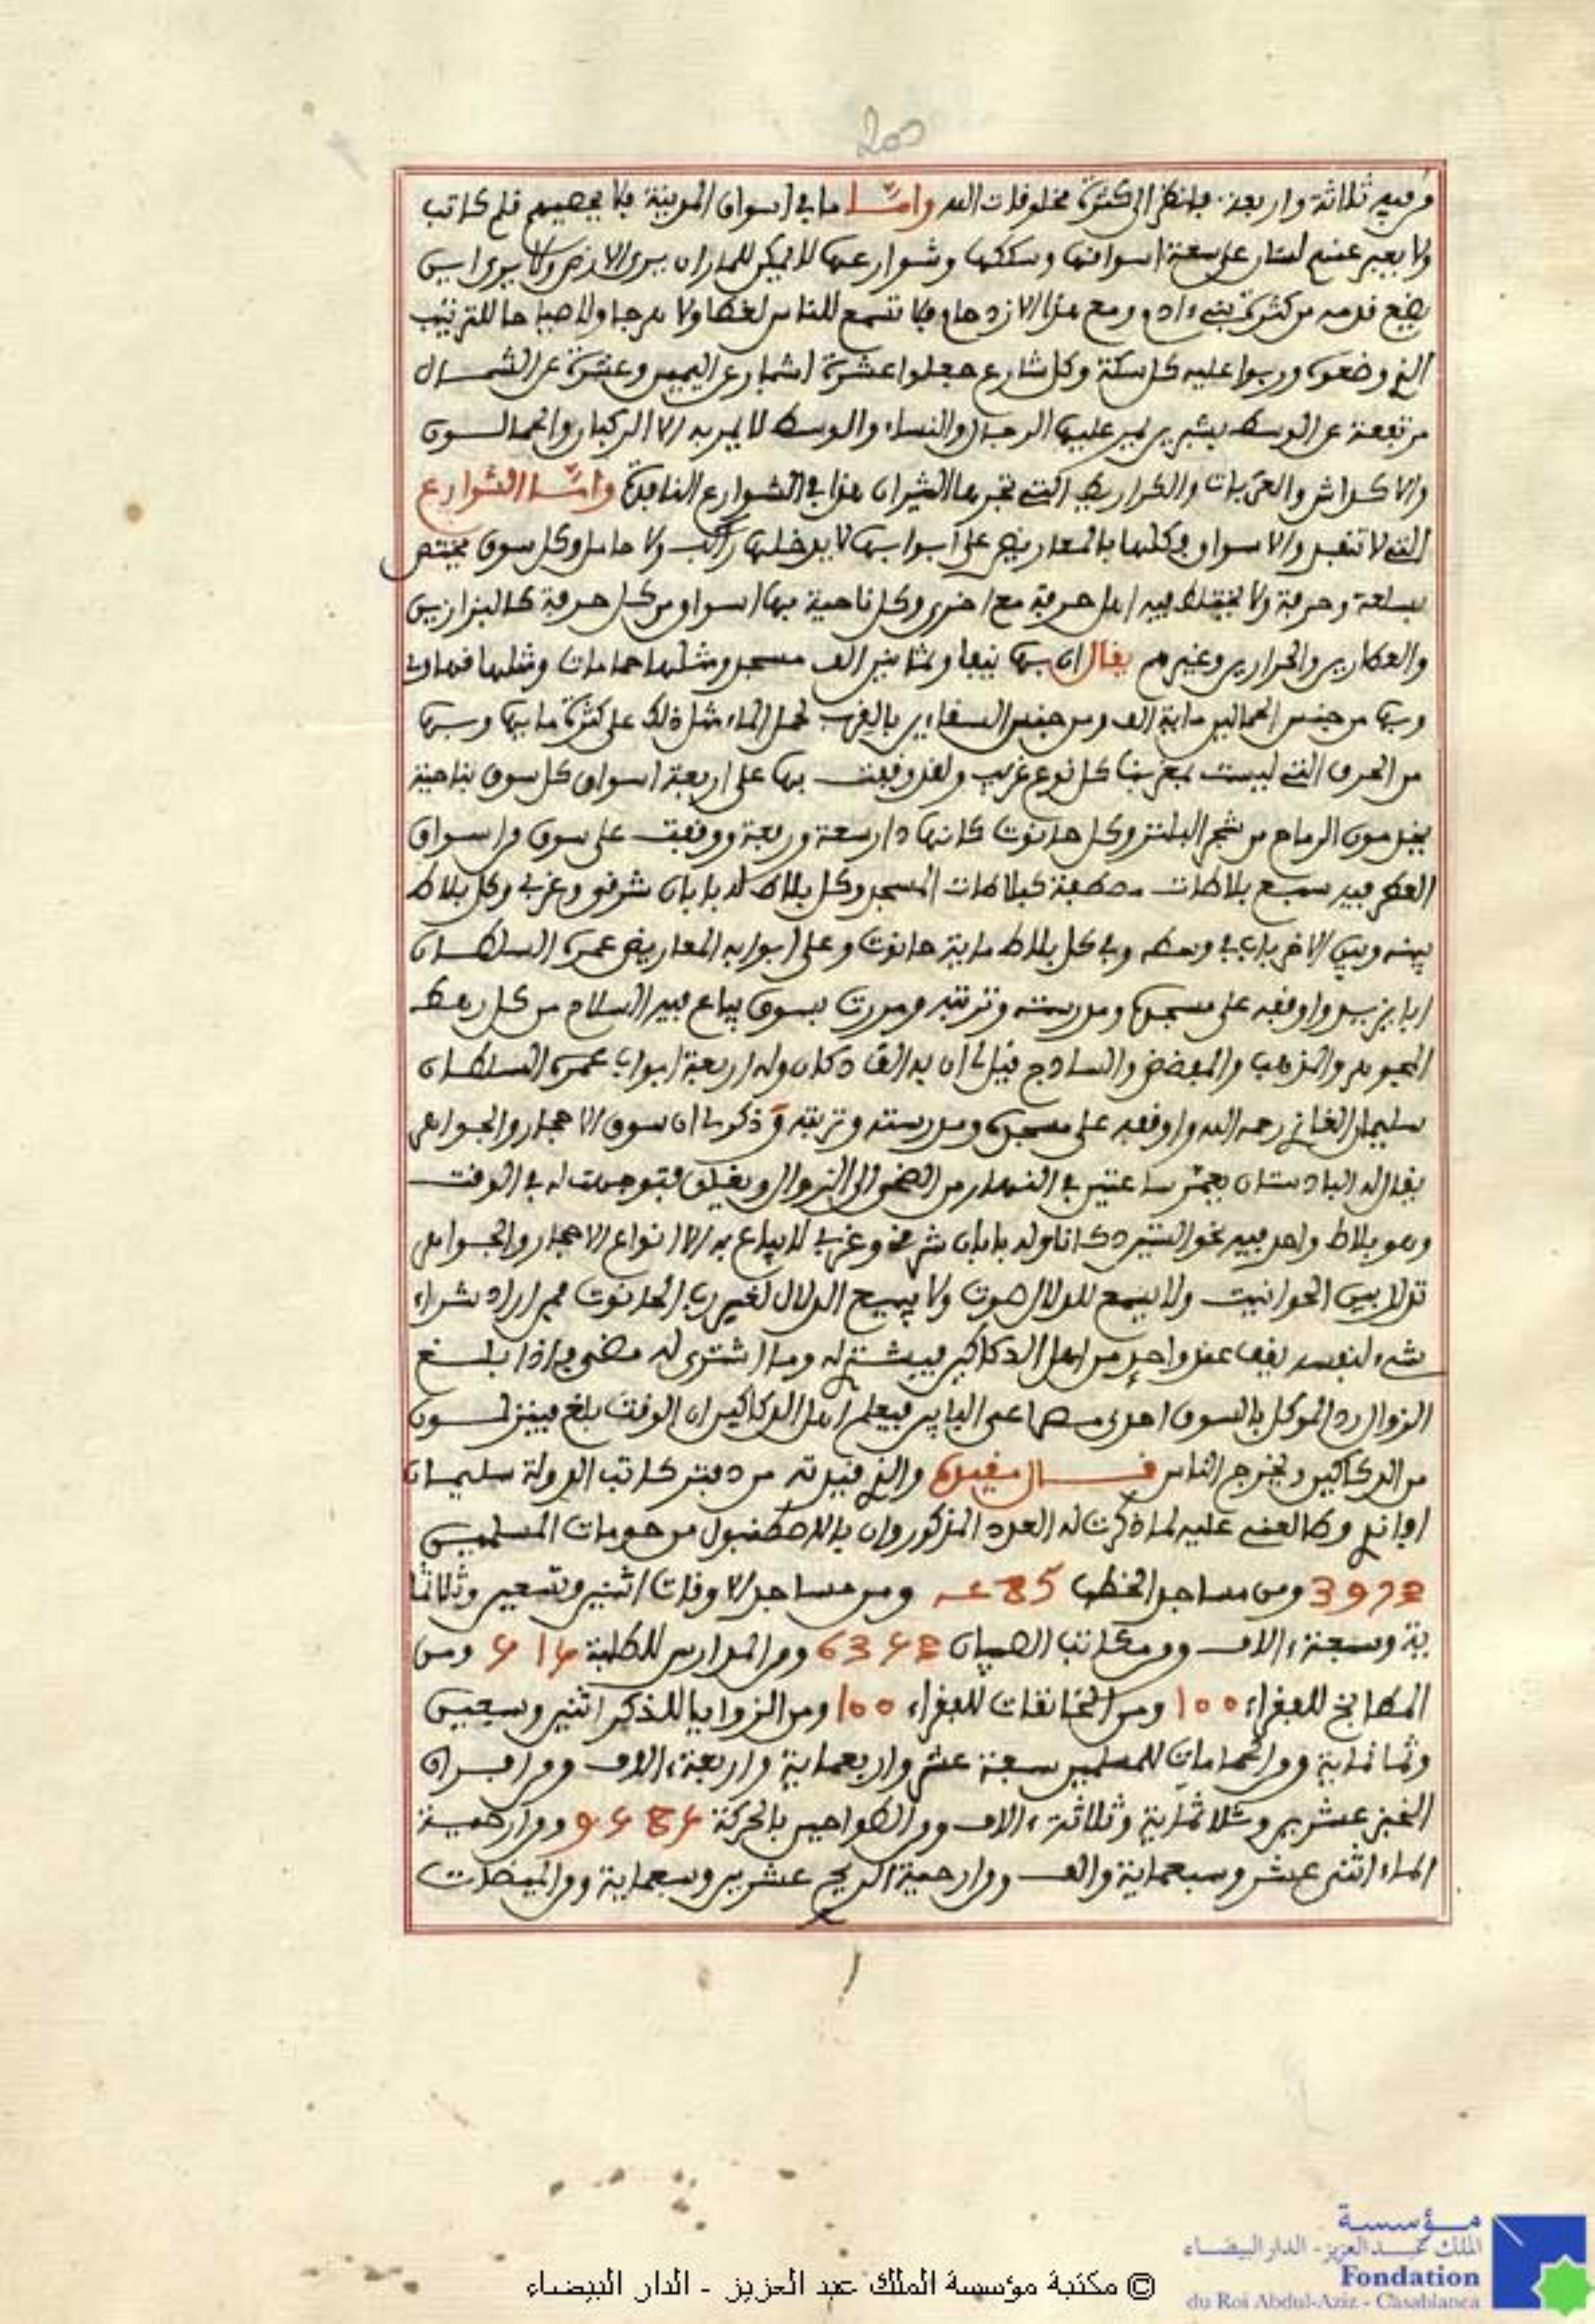 200
من فيه ثلاثة واربعة. فانظر الى كثرة مخلوقات الله واما ما في اسواق المدينة فلا يحصيهم قلم كاتب
ولا يعبر عنهم لسان على سعة اسواقها وسككها وشوارعها لا يمكن للمار ان يرى الارض ولا يرى اين
يضع قدمه من كثرة بني ءادم ومع هذا الازدحام فلا تسمع للناس لغطا ولا هرجا ولا صياحا للترتيب
الذي وضعوه ورتبوا عليه كل سكة وكل شارع جعلوا عشرة اشبار عن اليمين وعشرة عن الشمال
مرتفعة عن الوسط بشبرين يمر عليها الرجال والنساء والوسط لا يمر به الا الركبان والحمالون
والاكداش والعربات والكراريط التي تجرها الثيران هذا في الشوارع النافذة واما الشوارع
التي لا تنفذ والاسواق فكلها بالمعاريض على ابوابها لا يدخلها راكب ولا حامل وكل سوق يختص
بسلعة وحرفة ولا يختلط فيه اهل حرفة مع اخرى وكل ناحية بها اسواق من كل حرفة كالبزازين
والعطارين والحرارين وغيرهم يقال ان بها نيفا وثمانين الف مسجد ومثلها حمامات ومثلها قهاوي
وبها من جنس الحمالين ماية الف ومن جنس السقايين بالقرب لحمل الماء مثل ذلك على كثرة ما بها وبها
من الحرف التي ليست بمغربنا كل نوع غريب ولقد وقفت بها على اربعة اسواق كل سوق بناحية
يخدمون الرماح من شجر البلنز وكل حانوت كانها دار سعة ورفعة ووقفت على سوق من اسواق
العطر فيه سبع بلاطات مصطفة كبلاطات المسجد وكل بلاط له بابان شرقي وغربي وكل بلاط
بينه وبين الاخر باب في وسطه وفي كل بلاط ماية حانوت وعلى ابوابه المعاريض عمره السلطان
ابا يزيد واوقفه على مسجده ومدرسته وتربته ومررت بسوق يباع فيه السلاح من كل رهط
المجوهر والمذهب والمفضض والسادج قيل لي ان به الف دكان وله اربعة ابواب عمره السلطان
سليمان الغازي رحمه الله واوقفه على مسجده ومدرسته وتربته وذكر لي ان سوق الاحجار والجواهر
يقال له البادستان يعمر ساعتين في النهار من الضحى الى الزوال ويغلق فتوجهت له في الوقت
وهو بلاط واحد فيه نحو الستين دكانا وله بابان شرقي وغربي لا يباع به الا انواع الاحجار والجواهر
تدلل بين الحوانيت ولا يسمع للدلال صوت ولا يبيع الدلال لغير رب الحانوت فمن اراد شراء
شيء لنفسه يقف عند واحد من اهل الدكاكين فيشتري له وما اشترى له مضى فاذا بلغ
الزوال رد الموكل بالسوق احدى مصراعي البابين فيعلم اهل الدكاكين ان الوقت بلغ فينزلون
من الدكاكين ويخرج الناس قال مقيده والذي قيدته من دفتر كاتب الدولة سليمان
افاندي وطالعني عليه لما ذكرت له العدد المذكور وان باللاصطنبول من حومات المسلمين
397 ومن مساجد الخطب 85 ومن مساجد الاوقات اثنين وتسعين وثلاثما
ية وسبعة ءالاف ومن مكاتب الصبيان 63 ومن المدارس للطلبة ومن
المطابخ للفقراء 100 ومن الخانقات للفقراء 100 ومن الزوايا للذكر اثنين وسبعين
وثمانماية ومن الحمامات للمسلمين سبعة عشر واربعماية واربعة ءالاف ومن افران
الخبز عشرين وثلاثماية وثلاثة ءالاف ومن الطواحين بالحركة ومن ارحية
الماء اثنى عشر وسبعماية والف ومن ارحية الريح عشرين وسبعماية ومن الميضات
مؤسسة
الملك عبد العزيز - الدار البيضاء
Fondation
du Roi Abdul-Aziz - Casablanca
© مكتبة مؤسسة الملك عبد العزيز - الدار البيضاء